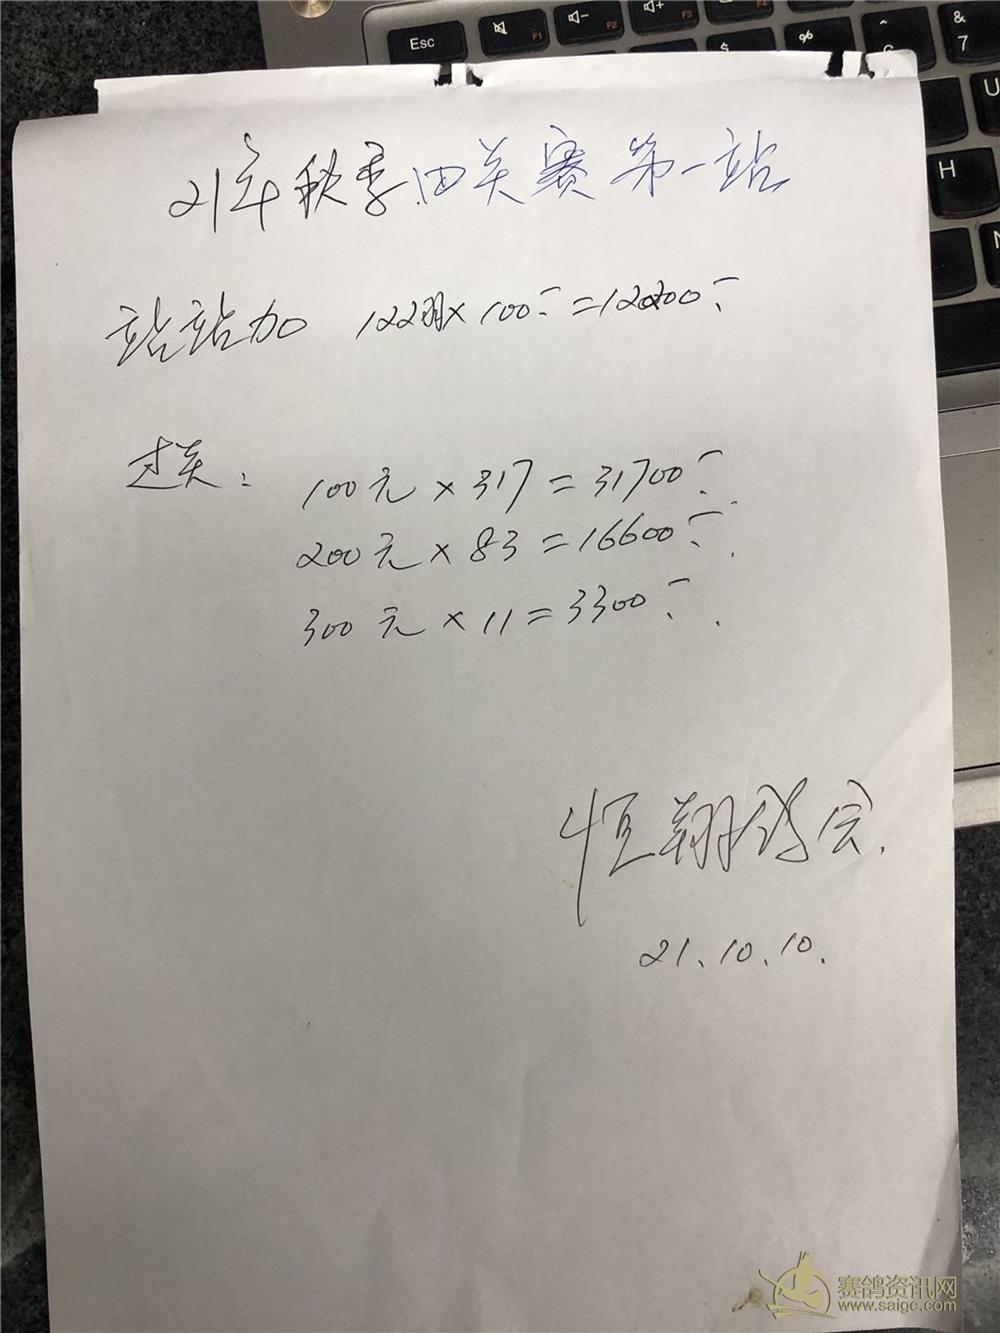 Esc
F1
F2
F3
F4
$
%
^
6
&
7
U
H
N
21年秋季四关赛第一站
站站加 122羽×100元=12200元
过关:
100元×317=31700元.
200元×83=16600元.
300元×11=3300元.
恒翔鸽会.
21.10.10.
赛鸽资讯网
www.saigc.com